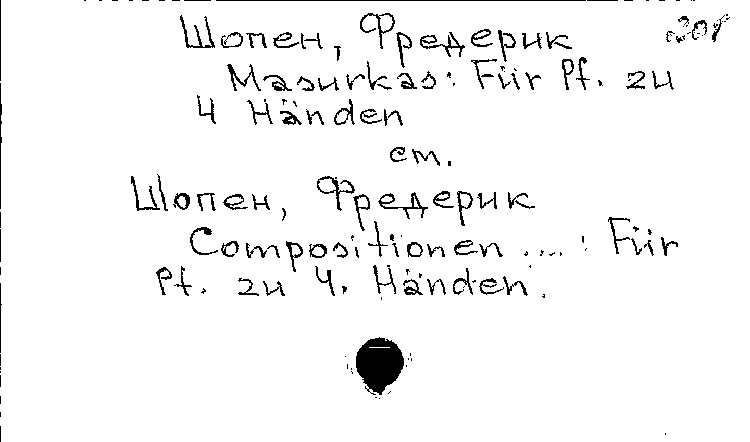 Шопен, Фредерик
Masurkas: Für Pf. zu
4 Händen
см.
Шопен, Фредерик
Compositionen ....: Für
Pf. zu 4. Händen.